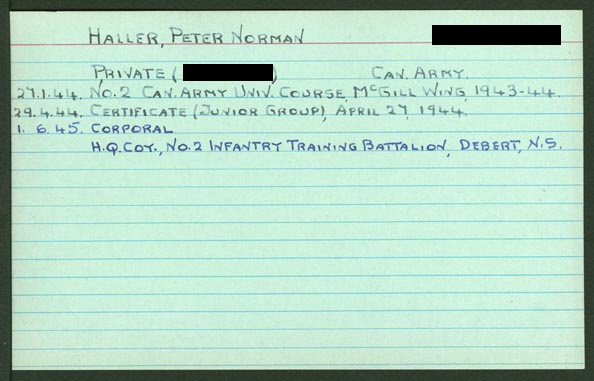 HALLER, PETER NORMAN
PRIVATE ( ) CAN. ARMY.
27.1.44. NO.2 CAN. ARMY UNIV. COURSE, MCGILL WING, 1943-44.
29.4.44. CERTIFICATE (JUNIOR GROUP), APRIL 27, 1944.
1. 6.45. CORPORAL
H.Q. COY., NO.2 INFANTRY TRAINING BATTALION, DEBERT, N.S.